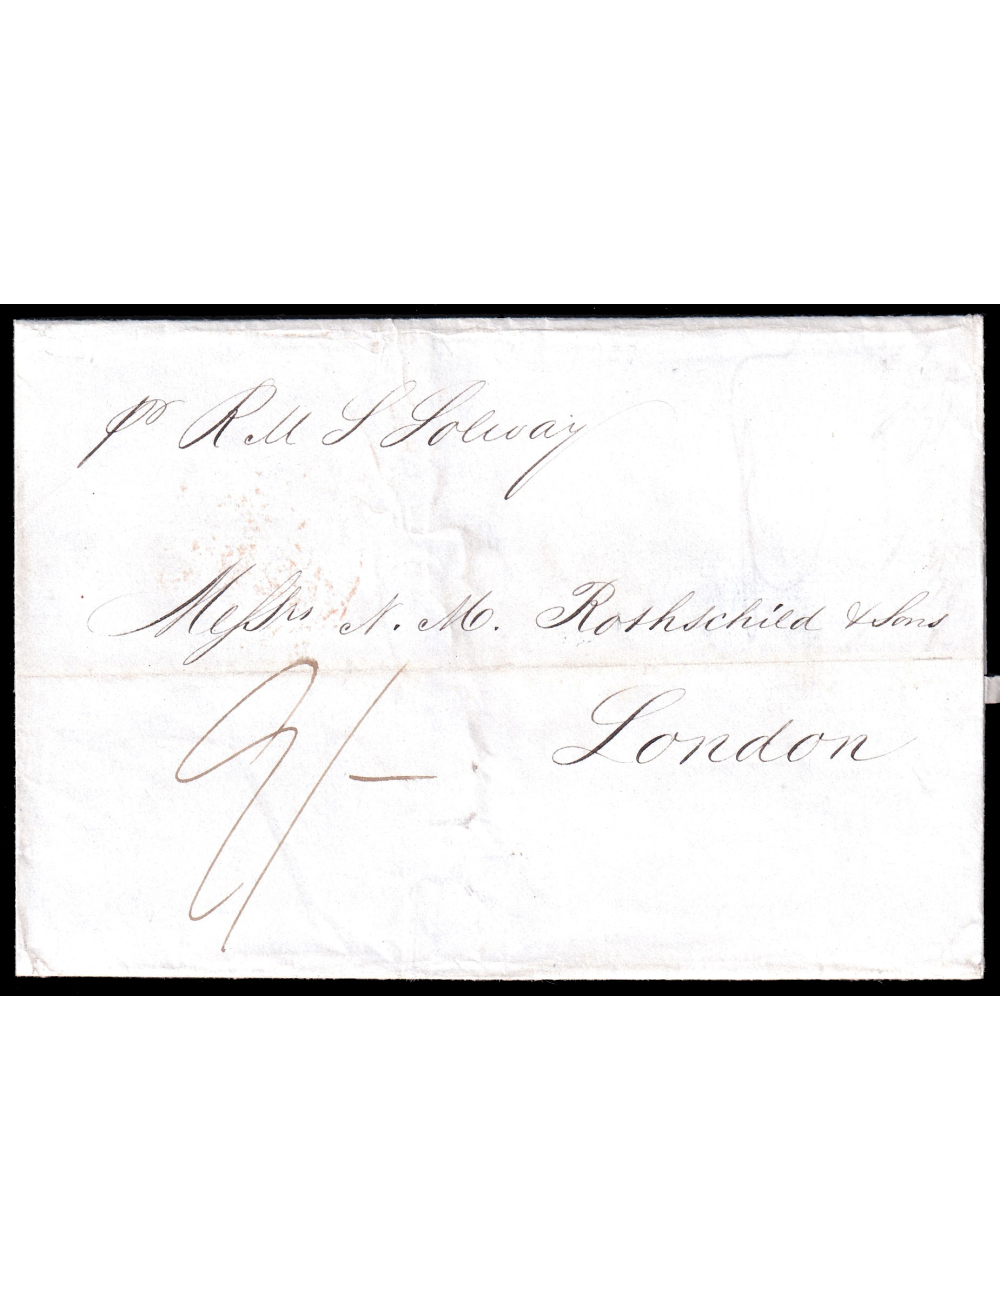 pr R M S Solway
Messrs N. M. Rothschild & Sons
London
9/-